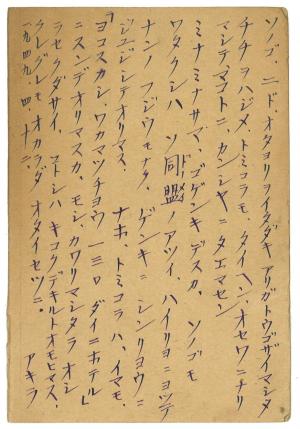 ソノゴ、ニド、オタヨリヲイタダキ アリガトウゴザイマシタ
チチヲハジメ、トミコラモ、タイヘン、オセワニナリ
マシテ、マコトニ、カンシヤニ タエマセン
ミナミナサマ、ゴゲンキデスカ、ソノゴモ
ワタクシハ ソ同盟ノアツイ、ハイリヨニヨツテ
ナンノ フジウモナク、ゲンキニ シンリヨウニ
ジユジシテオリマス、 ナホ、トミコラハ、イマモ、
「ヨコスカシ、ワカマツチヨウ 一三〇 ダイ一ホテル」
ニスンデオリマスカ、モシ、カワリマシタラ オシ
ラセクダサイ、 コトシハ キコクデキルトオモヒマス、
クレグレモ オカラダ オタイセツニ。
一九四九、四、十二、 アキラ